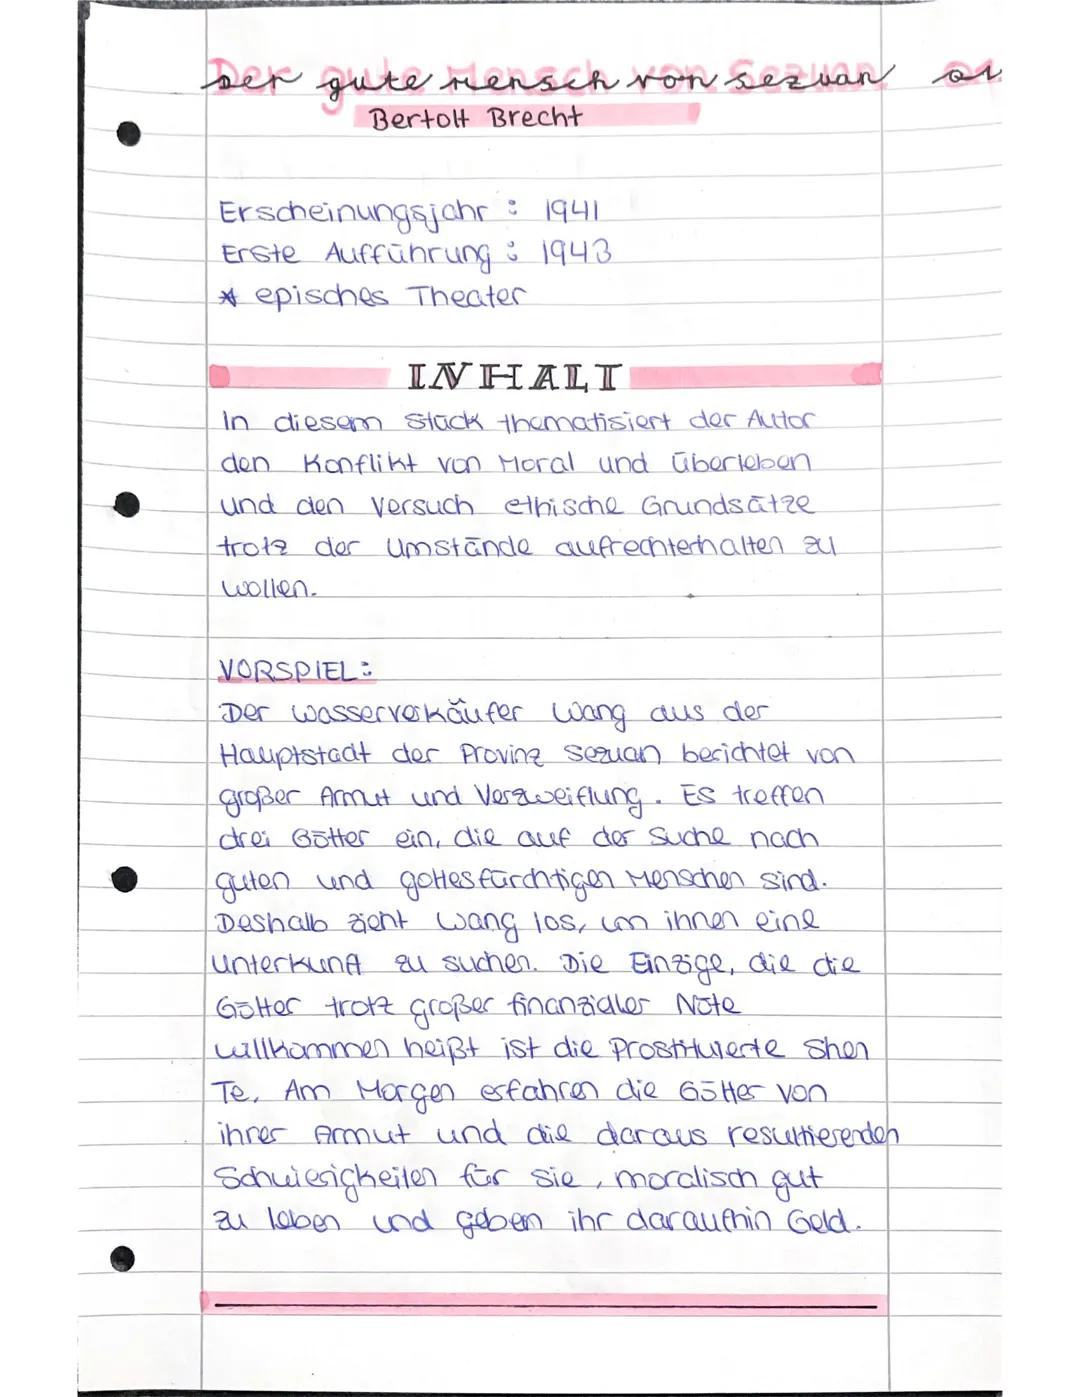 Der gute Mensch von Sezuan 01
Bertolt Brecht
Erscheinungsjahr : 1941
Erste Aufführung : 1943
* episches Theater
INHALT
In diesem Stück thematisiert der Autor
den Konflikt von Moral und überleben
und den Versuch ethische Grundsätze
trotz der Umstände aufrechterhalten zu
wollen.
VORSPIEL:
Der Wasserverkäufer Wang aus der
Hauptstadt der Provinz Sezuan berichtet von
großer Armut und Verzweiflung. Es treffen
drei Götter ein, die auf der Suche nach
guten und gottesfürchtigen Menschen sind.
Deshalb zieht Wang los, um ihnen eine
Unterkunft zu suchen. Die Einzige, die die
Götter trotz großer finanzieller Nöte
willkommen heißt ist die Prostituierte Shen
Te. Am Morgen erfahren die Götter von
ihrer Armut und die daraus resultierenden
Schwierigkeiten für sie, moralisch gut
zu leben und geben ihr daraufhin Geld.